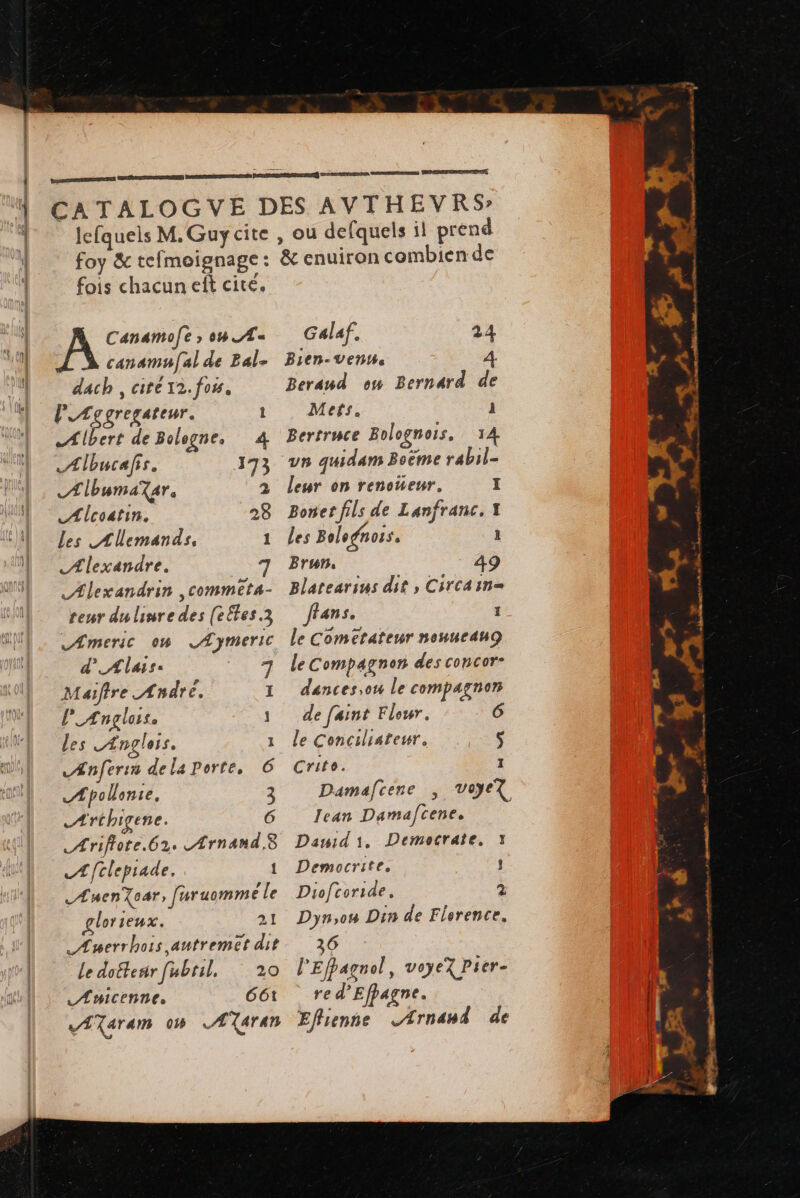 CATALOGVE DES AVTHEVRS,
lesquels M. Guy cite, ou desquels il prend
foy & tesmoignage: & enuiron combien de
fois chacun est cité.
A Canamose, ou A-
canamusal de Bal-
dach, cité 12. fois.
l'Aggregateur. 1
Albert de Bologne. 4
Albucasis. 173
AlbumaZar. 2
Alcoatin. 28
les Allemands. 1
Alexandre. 7
Alexandrin, comméta-
teur du liure des sectes. 3
Americ ou Aymeric
d'Alais. 7
Maistre André. 1
l'Anglois. 1
les Anglois. 1
Anserin de la Porte. 6
Apollonie. 3
Archigene. 6
Aristote. 62. Arnand. 8
Asclepiade. 1
AuenZoar, suruommé le
glorieux. 21
Auerrhois, autremét dit
le docteur subtil. 20
Auicenne. 661
AZaram ou AZaran
Galaf. 24
Bien-venu. 4
Beraud ou Bernard de
Mets. 1
Bertruce Bolognois. 14
vn quidam Boëme rabil-
leur on renoüeur. 1
Bonet fils de Lanfranc. 1
les Bolognois. 1
Brun. 49
Blatearius dit, Circa in-
stans. 1
le Cométateur nouueau 9
le Compagnon des concor-
dances, ou le compagnon
de saint Flour. 6
le Conciliateur. 5
Crito. 1
Damascene, voyeZ
Iean Damascene.
Dauid 1. Democrate. 1
Democrite. 1
Dioscoride. 2
Dyn, ou Din de Florence.
36
l'Espagnol, voyeZ Pier-
re d'Espagne.
Estienne Arnaud de